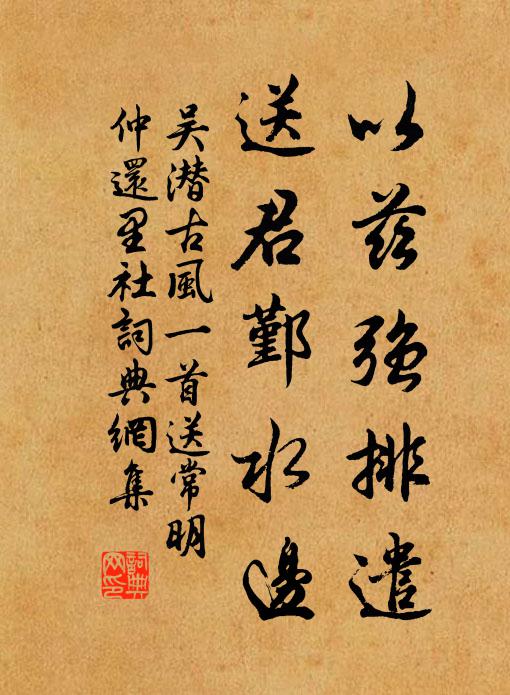 以茲強排遣
送君鄞水邊
吴潜古風一首送常明
仲還里社詞典網集
詞典网印